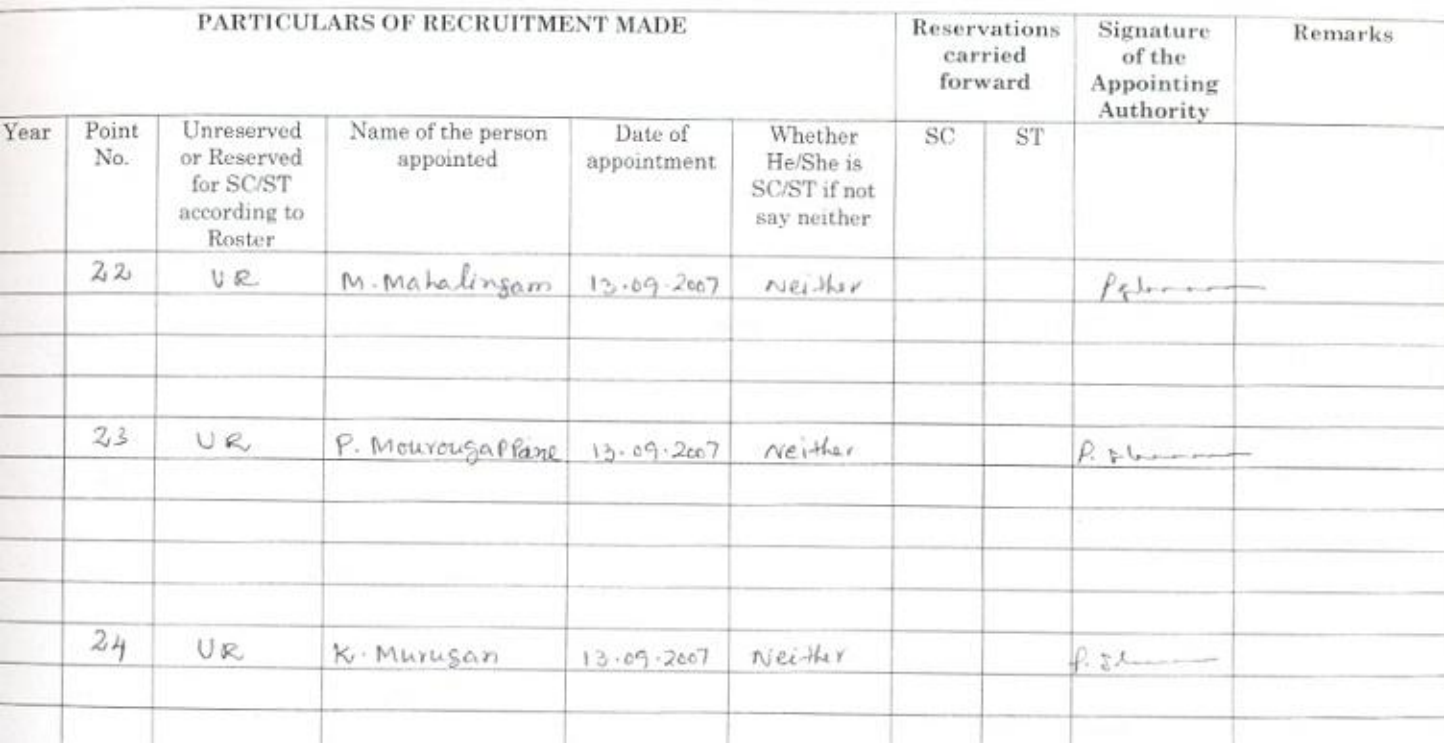 PARTICULARS OF RECRUITMENT MADE
Reservations carried forward
Signature of the Appointing Authority
Remarks
Year
Point No.
Unreserved or Reserved for SC/ST according to Roster
Name of the person appointed
Date of appointment
Whether He/She is SC/ST if not say neither
SC
ST
22 UR M. Mahalingam 13.09.2007 Neither
23 UR P. Mourougappane 13.09.2007 Neither
24 UR K. Murugan 13.09.2007 Neither